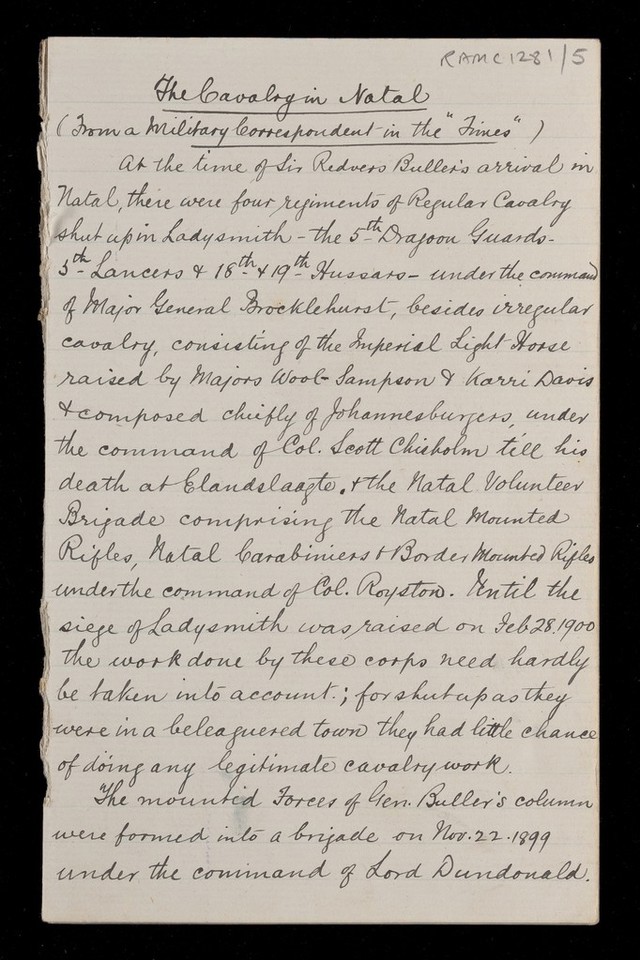 RAMC1281/5
The Cavalry in Natal
(From a Military Correspondent in the "Times")
At the time of Sir Redvers Buller's arrival in
Natal, there were four regiments of Regular Cavalry
shut up in Ladysmith - the 5th Dragoon Guards -
5th Lancers & 18th & 19th Hussars - under the command
of Major General Brocklehurst, besides irregular
cavalry, consisting of the Imperial Light Horse
raised by Majors Wool-Sampson & Karri Davis
& composed chiefly of Johannesburgers, under
the command of Col. Scott Chisholm till his
death at Elandslaagte, & the Natal Volunteer
Brigade comprising the Natal Mounted
Rifles, Natal Carabiniers & Border Mounted Rifles
under the command of Col. Royston. Until the
siege of Ladysmith was raised on Feb 28.1900
the work done by these corps need hardly
be taken into account.; for shut up as they
were in a beleaguered town they had little chance
of doing any legitimate cavalry work.
The mounted Forces of Gen. Buller's column
were formed into a brigade on Nov. 22. 1899
under the command of Lord Dundonald.